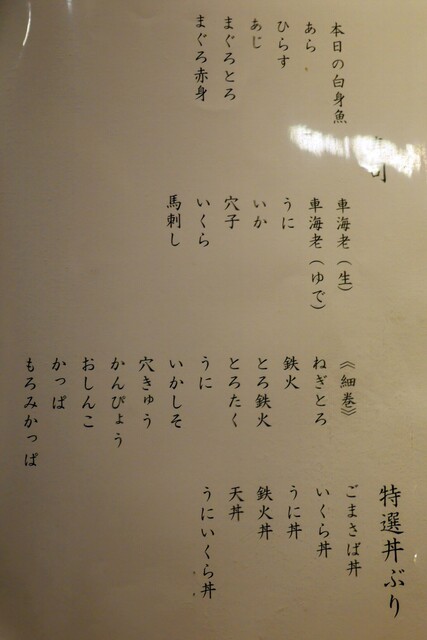 本日の白身魚
あら
ひらす
あじ
まぐろとろ
まぐろ赤身
司
車海老（生）
車海老（ゆで）
うに
いか
穴子
いくら
馬刺し
《細巻》
ねぎとろ
鉄火
とろ鉄火
とろたく
うに
いかしそ
穴きゅう
かんぴょう
おしんこ
かっぱ
もろみかっぱ
特選丼ぶり
ごまさば丼
いくら丼
うに丼
鉄火丼
天丼
うにいくら丼